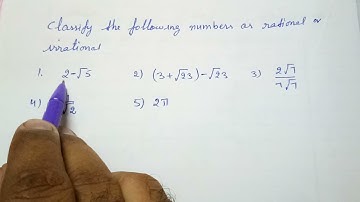 Classify the following numbers as rational or
irrational
1. 2-√5 2) (3+√23)-√23 3) 2√7/7√7
4) √2 5) 2π